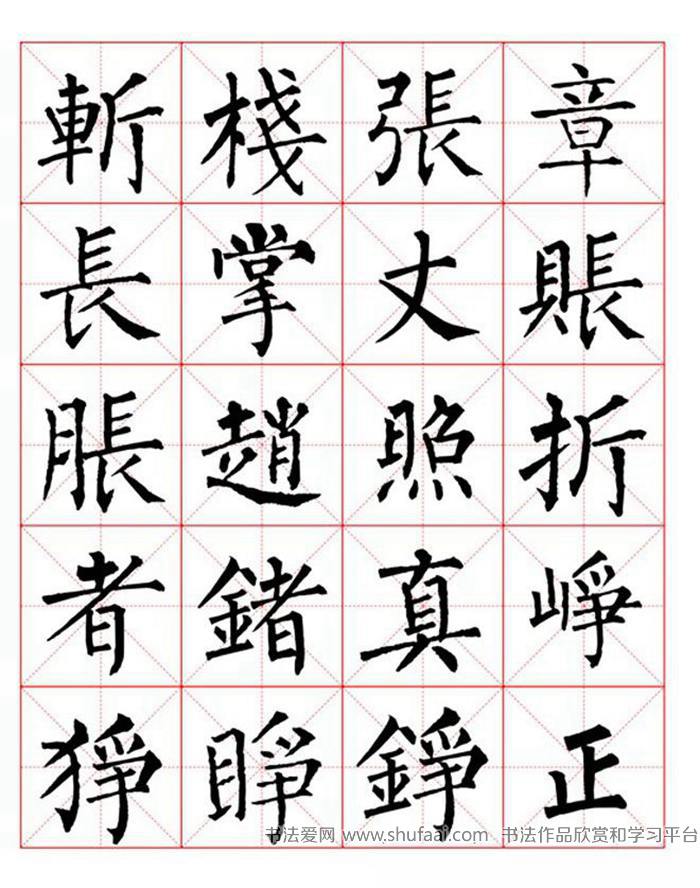 斬棧張章
長掌丈賬
脹趙照折
者鍺真崢
猙睜錚正
书法爱网 www.shufaai.com 书法作品欣赏和学习平台